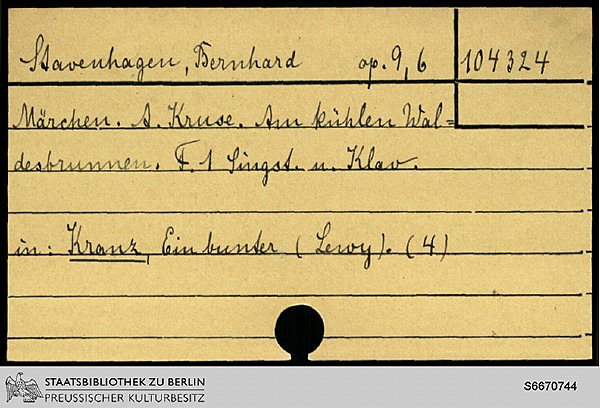 Stavenhagen, Bernhard op. 9,6 104324
Märchen. A. Kruse. Am kühlen Wal=
desbrunnen. F. 1 Singst. u. Klav.
in: Kranz, Ein bunter (Lewy). (4)
STAATSBIBLIOTHEK ZU BERLIN
PREUSSISCHER KULTURBESITZ
S6670744